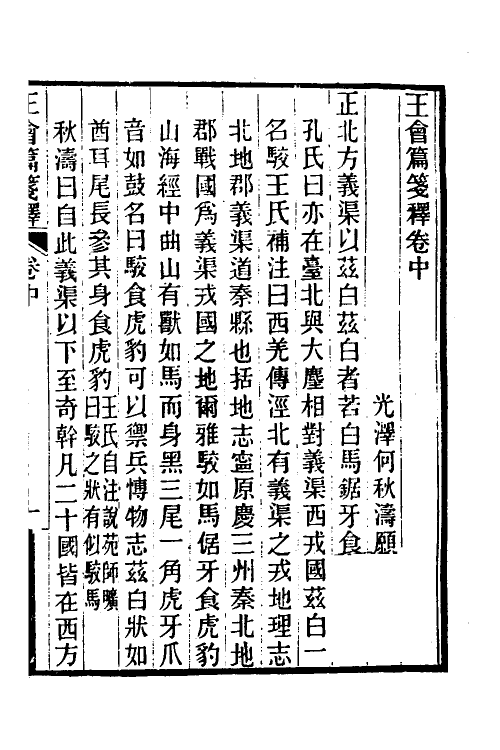 王會篇箋釋卷中
光澤何秋濤願
正北方義渠以茲白茲白者若白馬鋸牙食
孔氏曰亦在臺北與大塵相對義渠西戎國茲白一
名駮王氏補注曰西羌傳涇北有義渠之戎地理志
北地郡義渠道秦縣也括地志寧原慶三州秦北地
郡戰國爲義渠戎國之地爾雅駮如馬倨牙食虎豹
山海經中曲山有獸如馬而身黑三尾一角虎牙爪
音如鼓名曰駮食虎豹可以禦兵博物志茲白狀如
酋耳尾長參其身食虎豹王氏自注說苑師曠
曰駮之狀有似駮馬
秋濤曰自此義渠以下至奇幹凡二十國皆在西方
王會篇箋釋
卷中
一